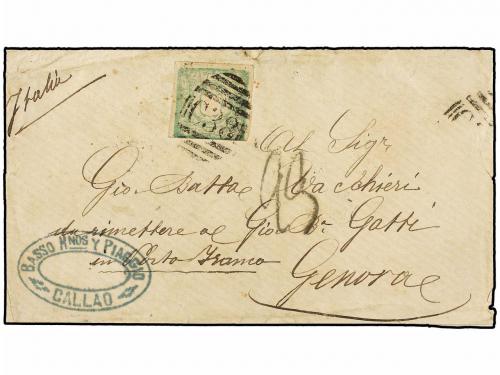 Italia
C38
Al Sigr
Gio Batta Vacchieri
da rimettere al Gio Bta Gatti
in Porto Franco
Genova
23
BASSO HNOS Y PIAGGIO
CALLAO